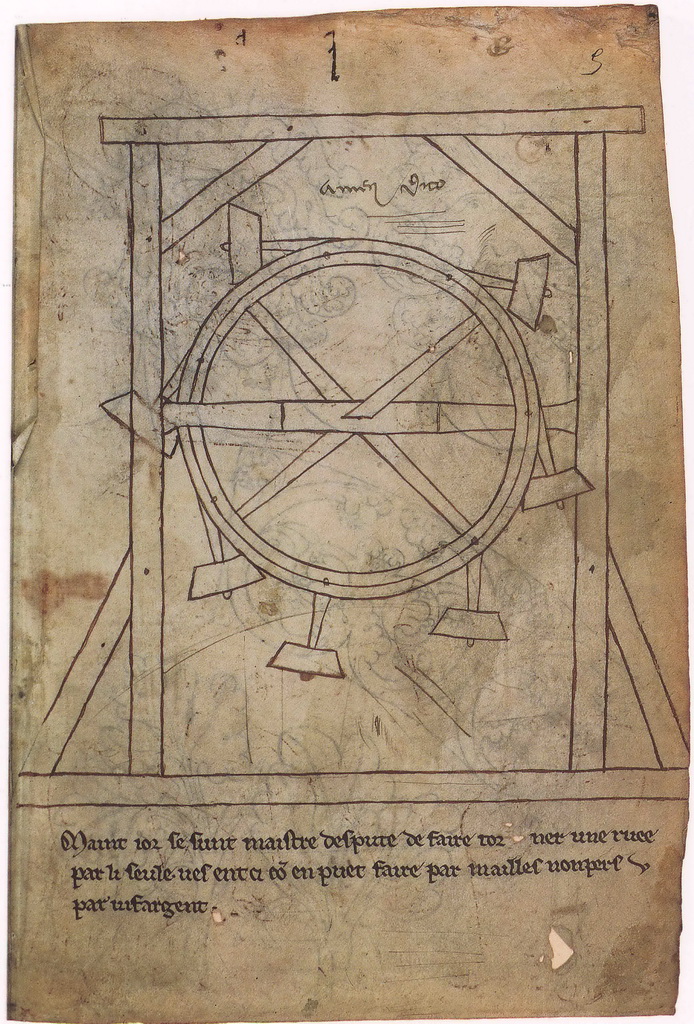 5
amen dico
Maint ior se sunt maistre despute de faire tor ner une ruee
par li seule· ves ent ci cō en puet faire par mailles nonpers v
par vif argent·